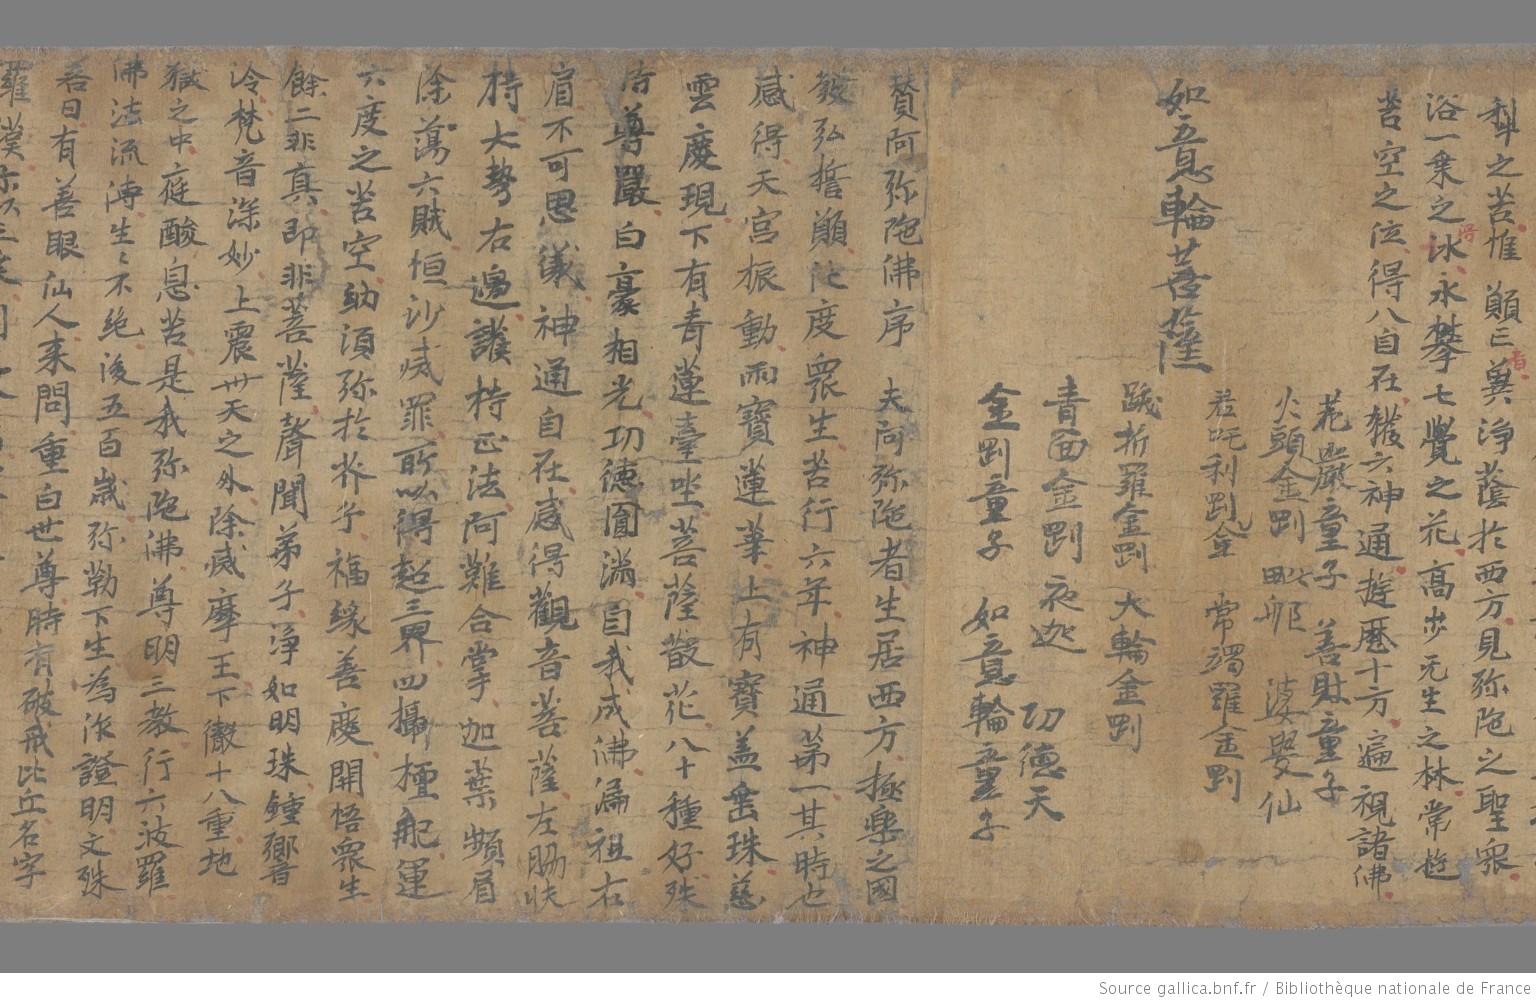 科之苦惟願三冀淨蔭於西方見弥陁之聖衆
浴一乗之冰得永攀七覺之花高步无生之林常遊
苦空之位得八自在獲六神通遊歷十方遍視諸佛
花嚴童子 善財童子
火頭金剛 毗郍 婆娶仙
君吒利剛金 常
羅金剛
如意輪菩薩
折羅金剛 大輪金剛
青面金剛 夜迦 功德天
金剛童子 如意輪童子
賛阿弥陁佛序 夫阿弥陁者生居西方極樂之國
發弘誓願陁度衆生苦行六年神通苐一其時也
感得天宮振動雨寶蓮華上有寶盖垂珠慈
雲慶現下有青蓮臺坐菩薩散花八十種好殊
尊嚴白豪相光功德圎滿自我成佛漏祖右
肩不可思儀神通自在感得觀音菩薩左脇
持大勢右邊護持正法阿難合掌迦葉頻眉
除蕩六賊恒沙滅罪所以得超三界四攝檀舩運
六度之苦空納湏弥扵芥子福緣善慶開悟衆生
餘二非真即非菩薩聲聞弟子淨如明珠鍾響
泠梵音深妙上震卅天之外除滅摩王下徹十八重地
獄之中庭酸息苦是我弥陁佛尊明三教行六波羅
佛法流漙生〻不絶後五百歲弥勒下生為作證明文殊
昔日有善眼仙人来問重白世尊時有破戒比丘名字
羅漢